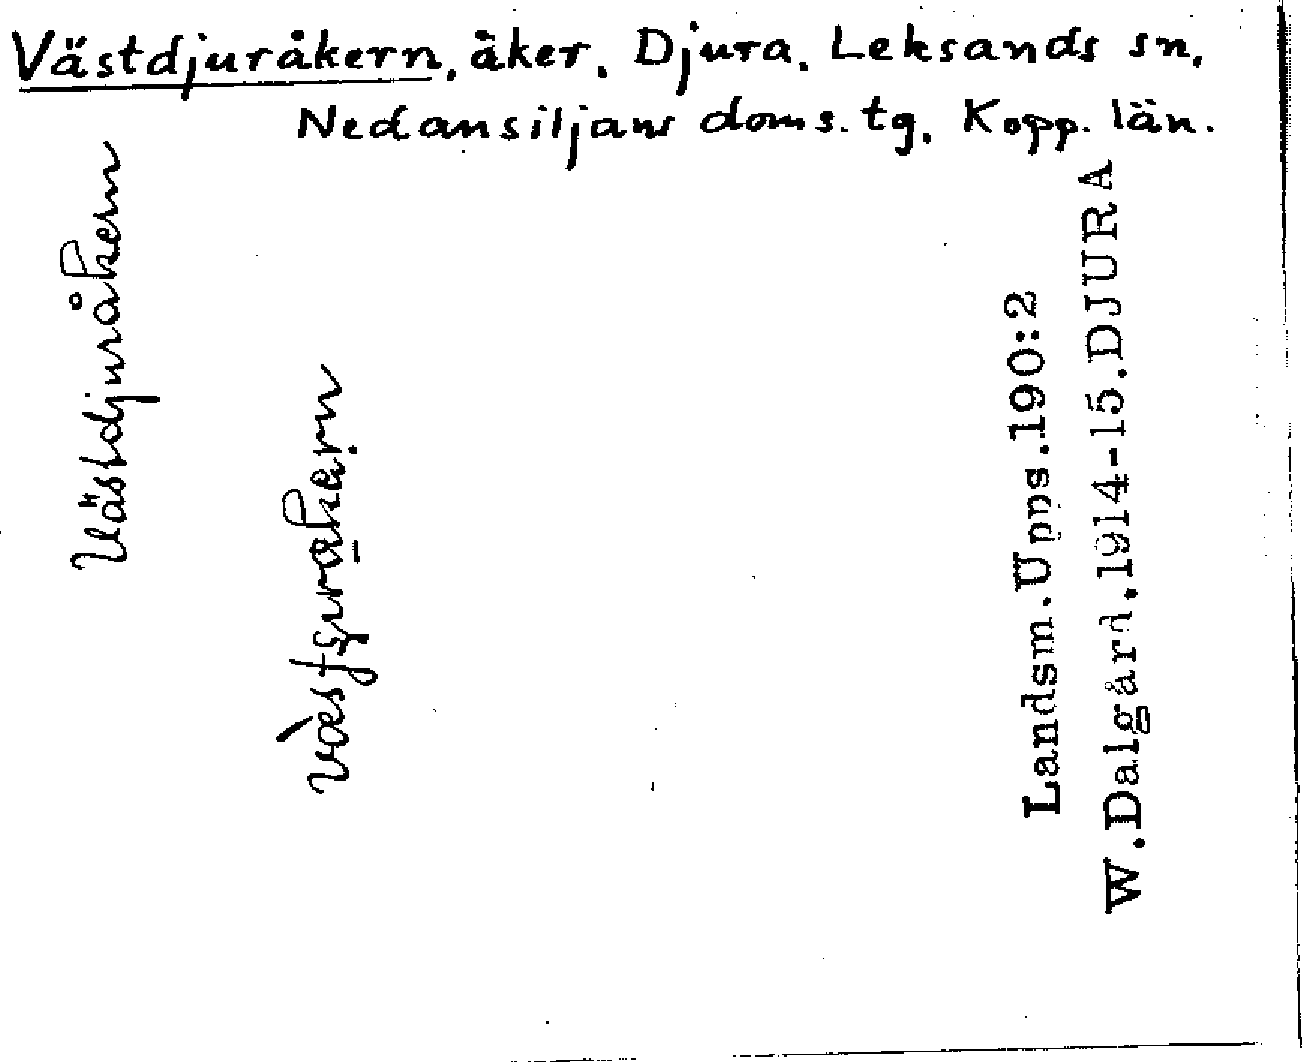 Västdjuråkern, åker, Djura, Leksands sn,
Nedansiljans doms. tg, Kopp. län.
Västdjuråkern
Landsm.Upps.190:2
W.Dalgård.1914-15.DJURA